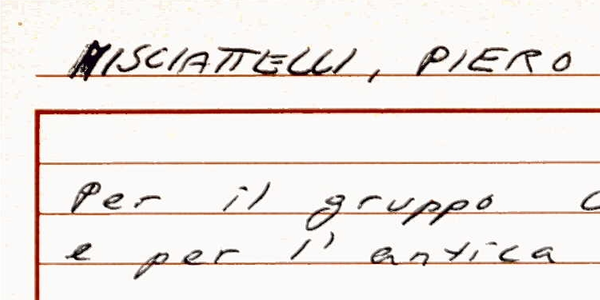 MISCIATTELLI, PIERO
Per il gruppo
e per l' antica